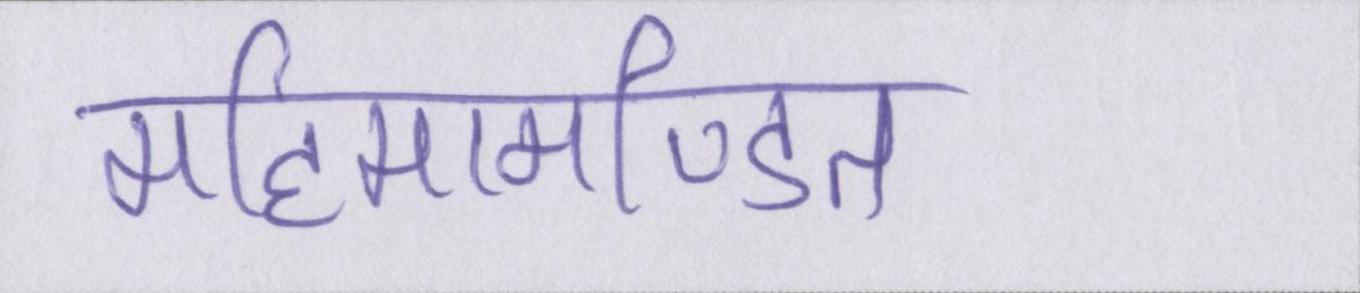 महिमामण्डित